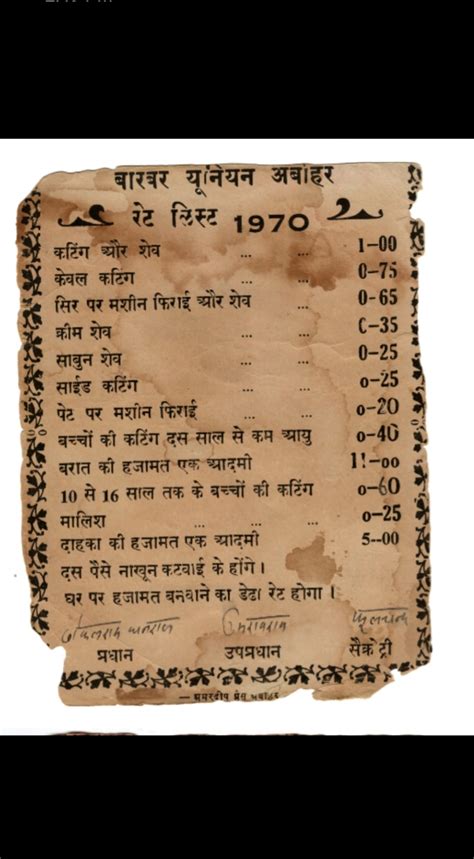 बारबर यूनियन अबोहर
रेट लिस्ट 1970
कटिंग और शेव ... ... 1-00
केवल कटिंग ... ... 0-75
सिर पर मशीन फिराई और शेव ... 0-65
क्रीम शेव ... ... 0-35
साबुन शेव ... ... 0-25
साईड कटिंग ... ... 0-25
पेट पर मशीन फिराई ... ... 0-20
बच्चों की कटिंग दस साल से कम आयु 0-40
बरात की हजामत एक आदमी ... 11-00
10 से 16 साल तक के बच्चों की कटिंग 0-60
मालिश ... ... ... 0-25
दाहका की हजामत एक आदमी 5--00
दस पैसे नाखून कटवाई के होंगे ।
घर पर हजामत बनवाने का डेढा रेट होगा ।
प्रधान उपप्रधान सैक्रेट्री